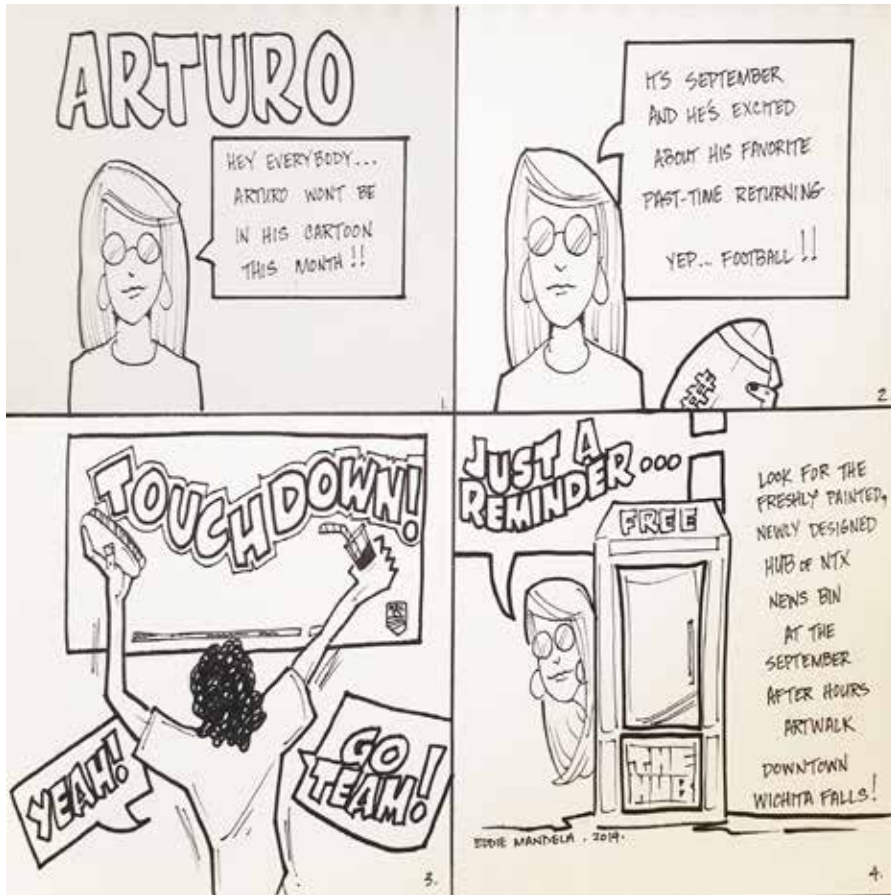 ARTURO
HEY EVERYBODY...
ARTURO WONT BE
IN HIS CARTOON
THIS MONTH!!
1
ITS SEPTEMBER
AND HE'S EXCITED
ABOUT HIS FAVORITE
PAST-TIME RETURNING
YEP... FOOTBALL!!
2
TOUCHDOWN!
YEAH!
GO
TEAM!
3.
JUST A
REMINDER...
FREE
THE
HUB
LOOK FOR THE
FRESHLY PAINTED,
NEWLY DESIGNED
HUB OF NTX
NEWS BIN
AT THE
SEPTEMBER
AFTER HOURS
ARTWALK
DOWNTOWN
WICHITA FALLS!
EDDIE MANDELA . 2019.
4.